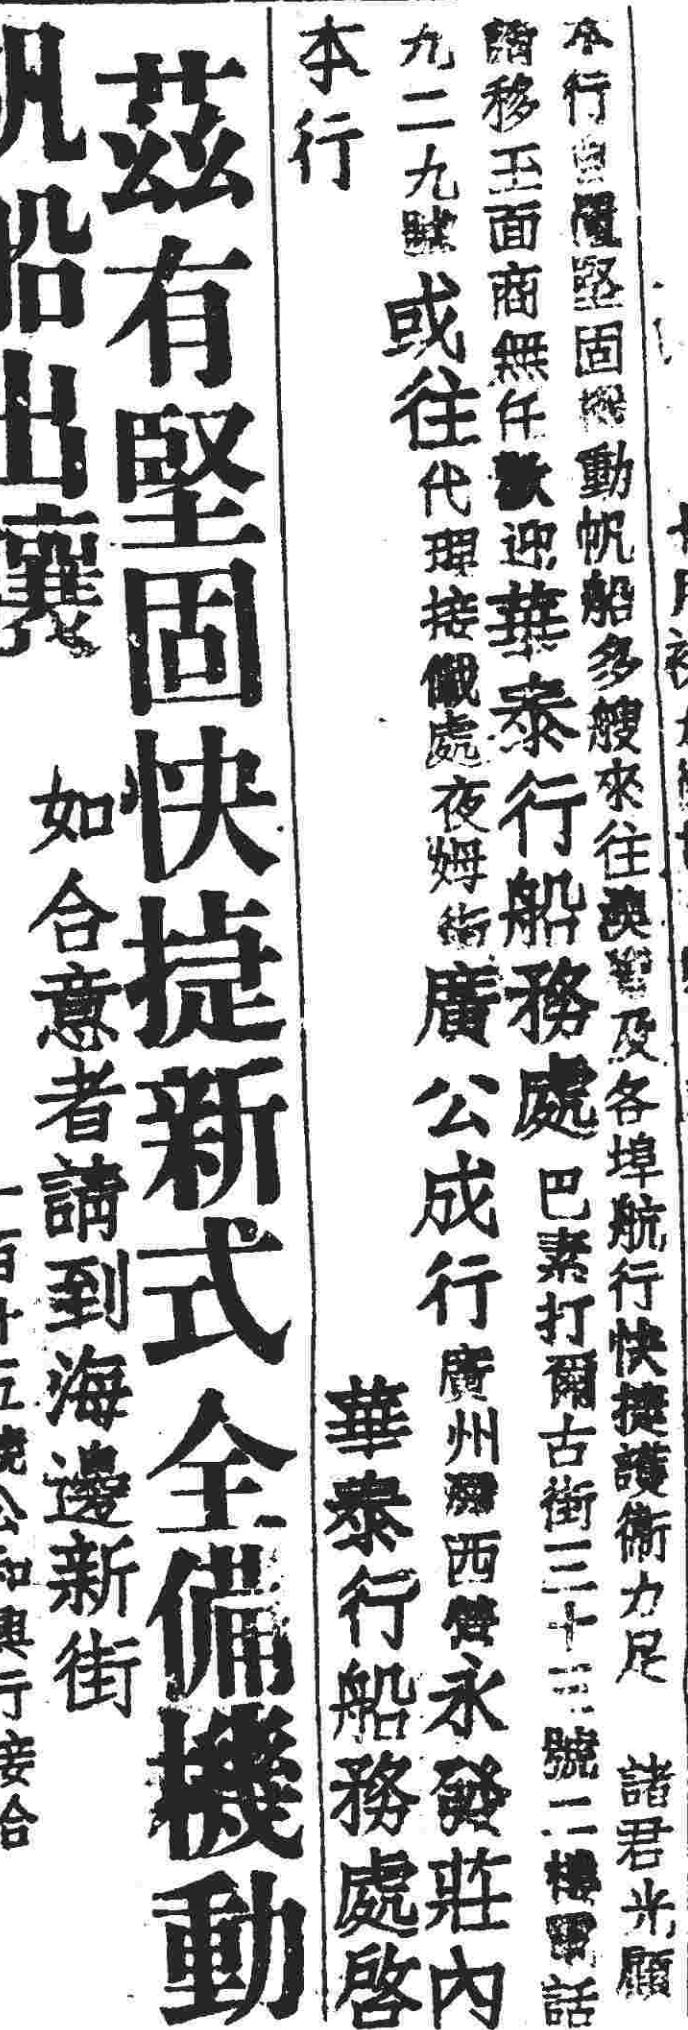 本行自置堅固機動帆船多艘來往澳門及各埠航行快捷護衛力足 諸君光顧
請移玉面商無任歡迎華泰行船務處巴素打爾古街三十三號二樓電話
九二九號或往代理接儎處夜姆街廣公成行廣州灣西營永發莊內
本行 華泰行船務處啓
茲有堅固快捷新式全備機動
帆船出讓 如合意者請到海邊新街
百廿五號公和興行接洽